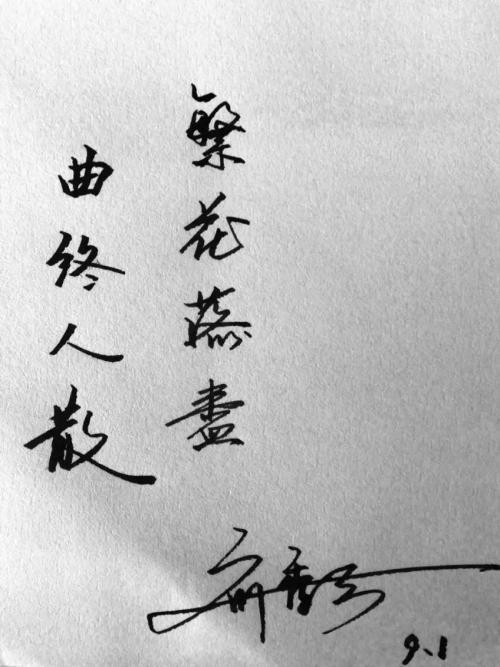 繁花落盡
曲终人散
9.1